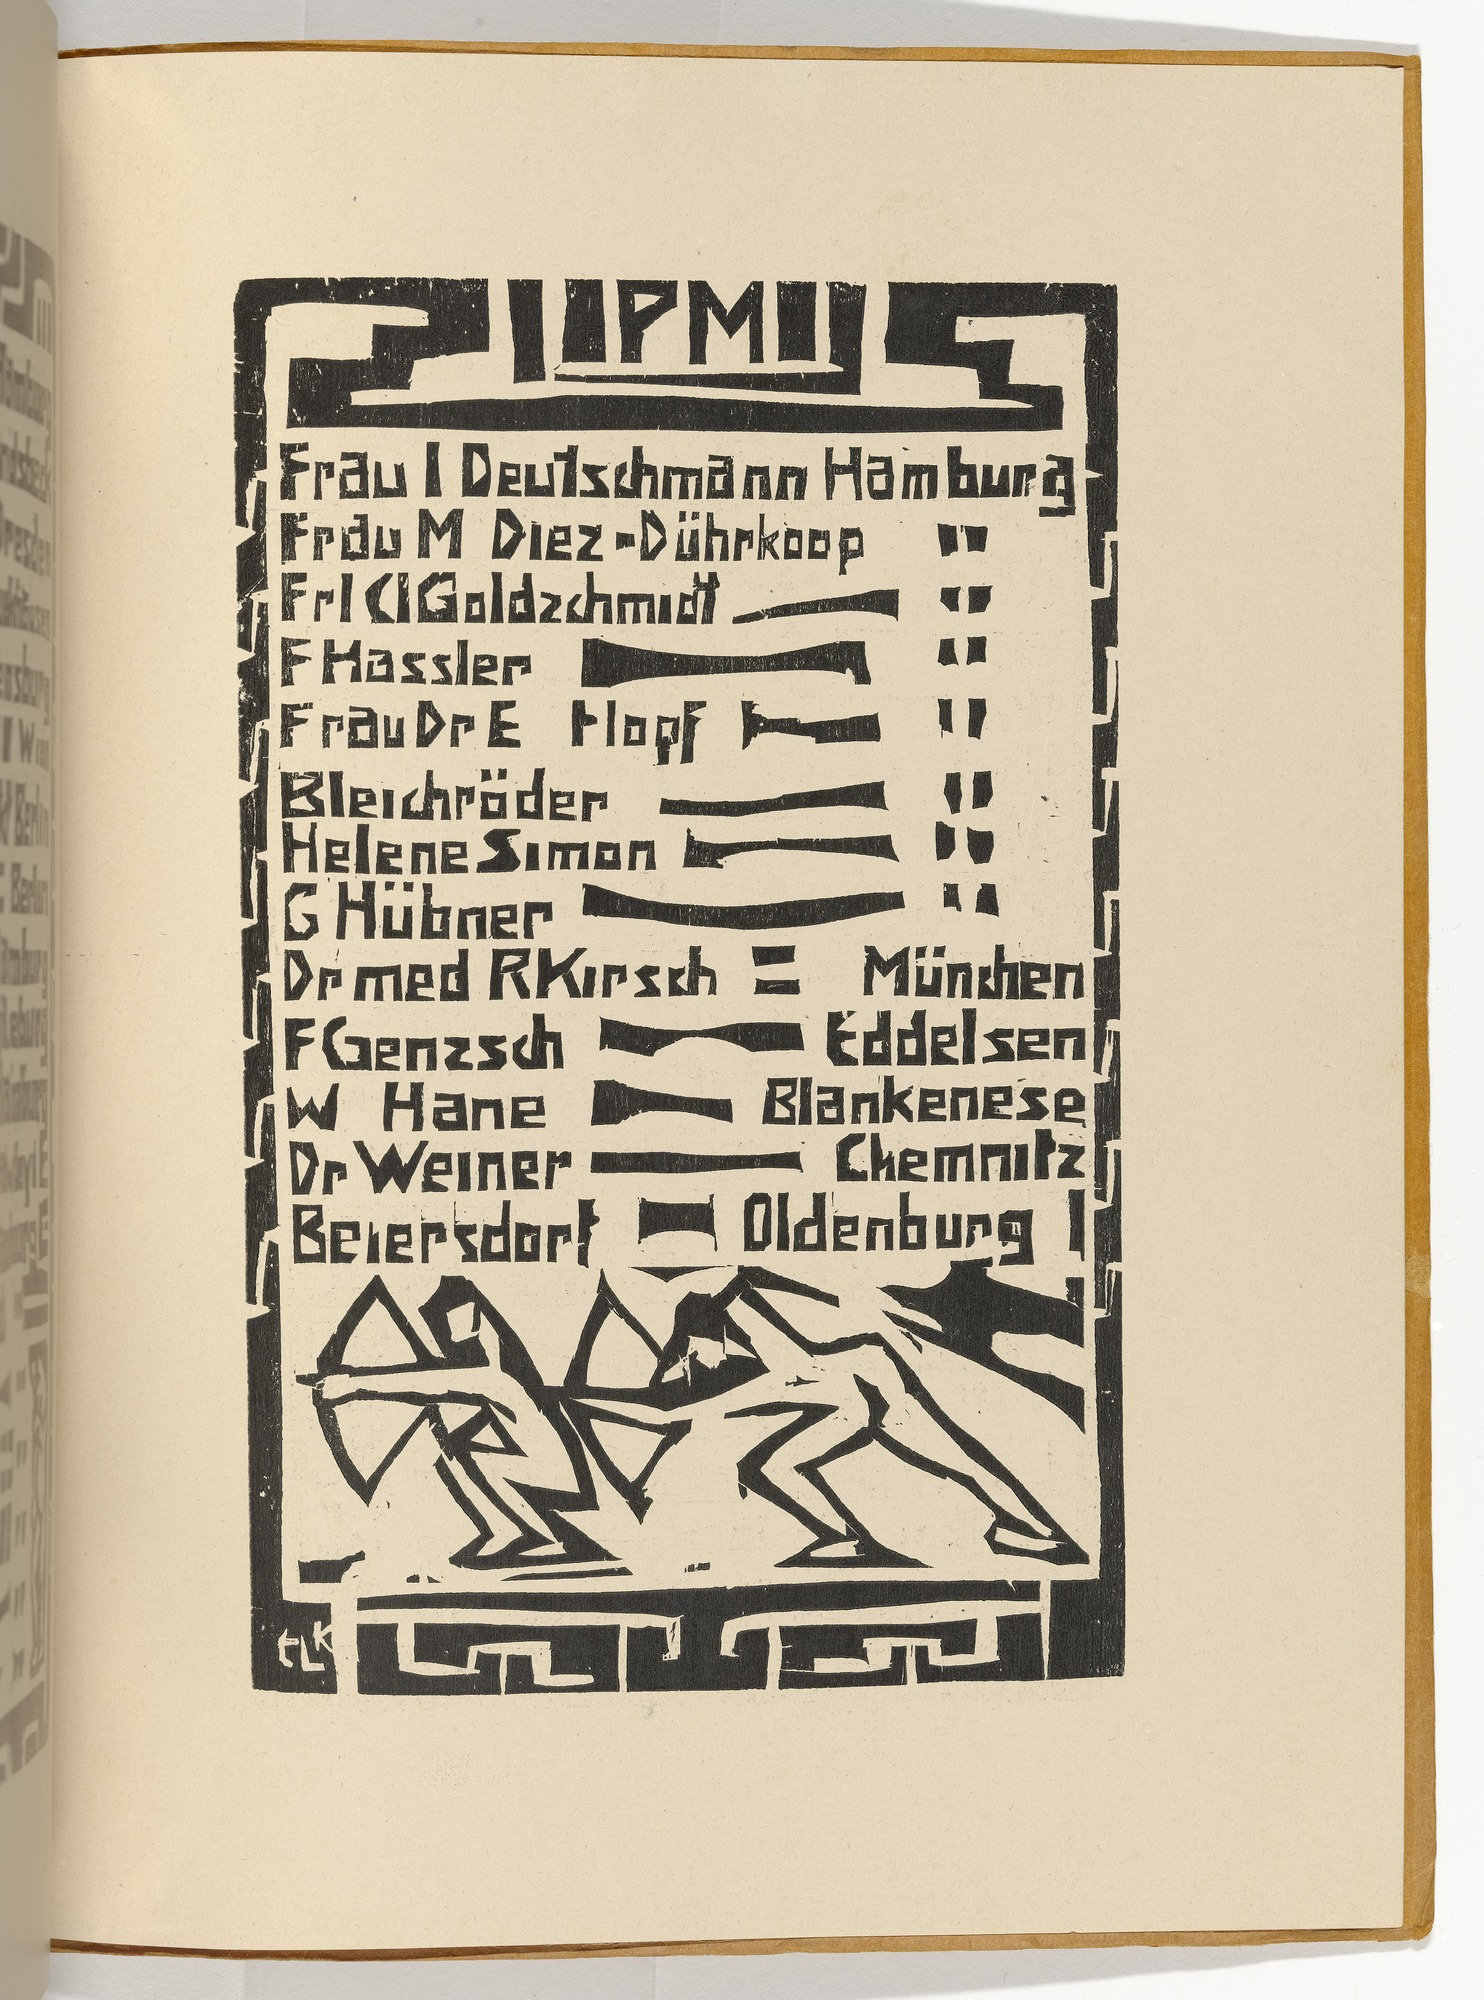 PM
Frau I Deutschmann Hamburg
Frau M Diez-Dührkoop "
Frl Cl Goldschmidt "
F Hassler "
Frau Dr E Hopf "
Bleichröder "
Helene Simon "
G Hübner "
Dr med R Kirsch = München
F Genzsch Eddelsen
W Hane Blankenese
Dr Weiner Chemnitz
Beiersdorf Oldenburg I
ELK